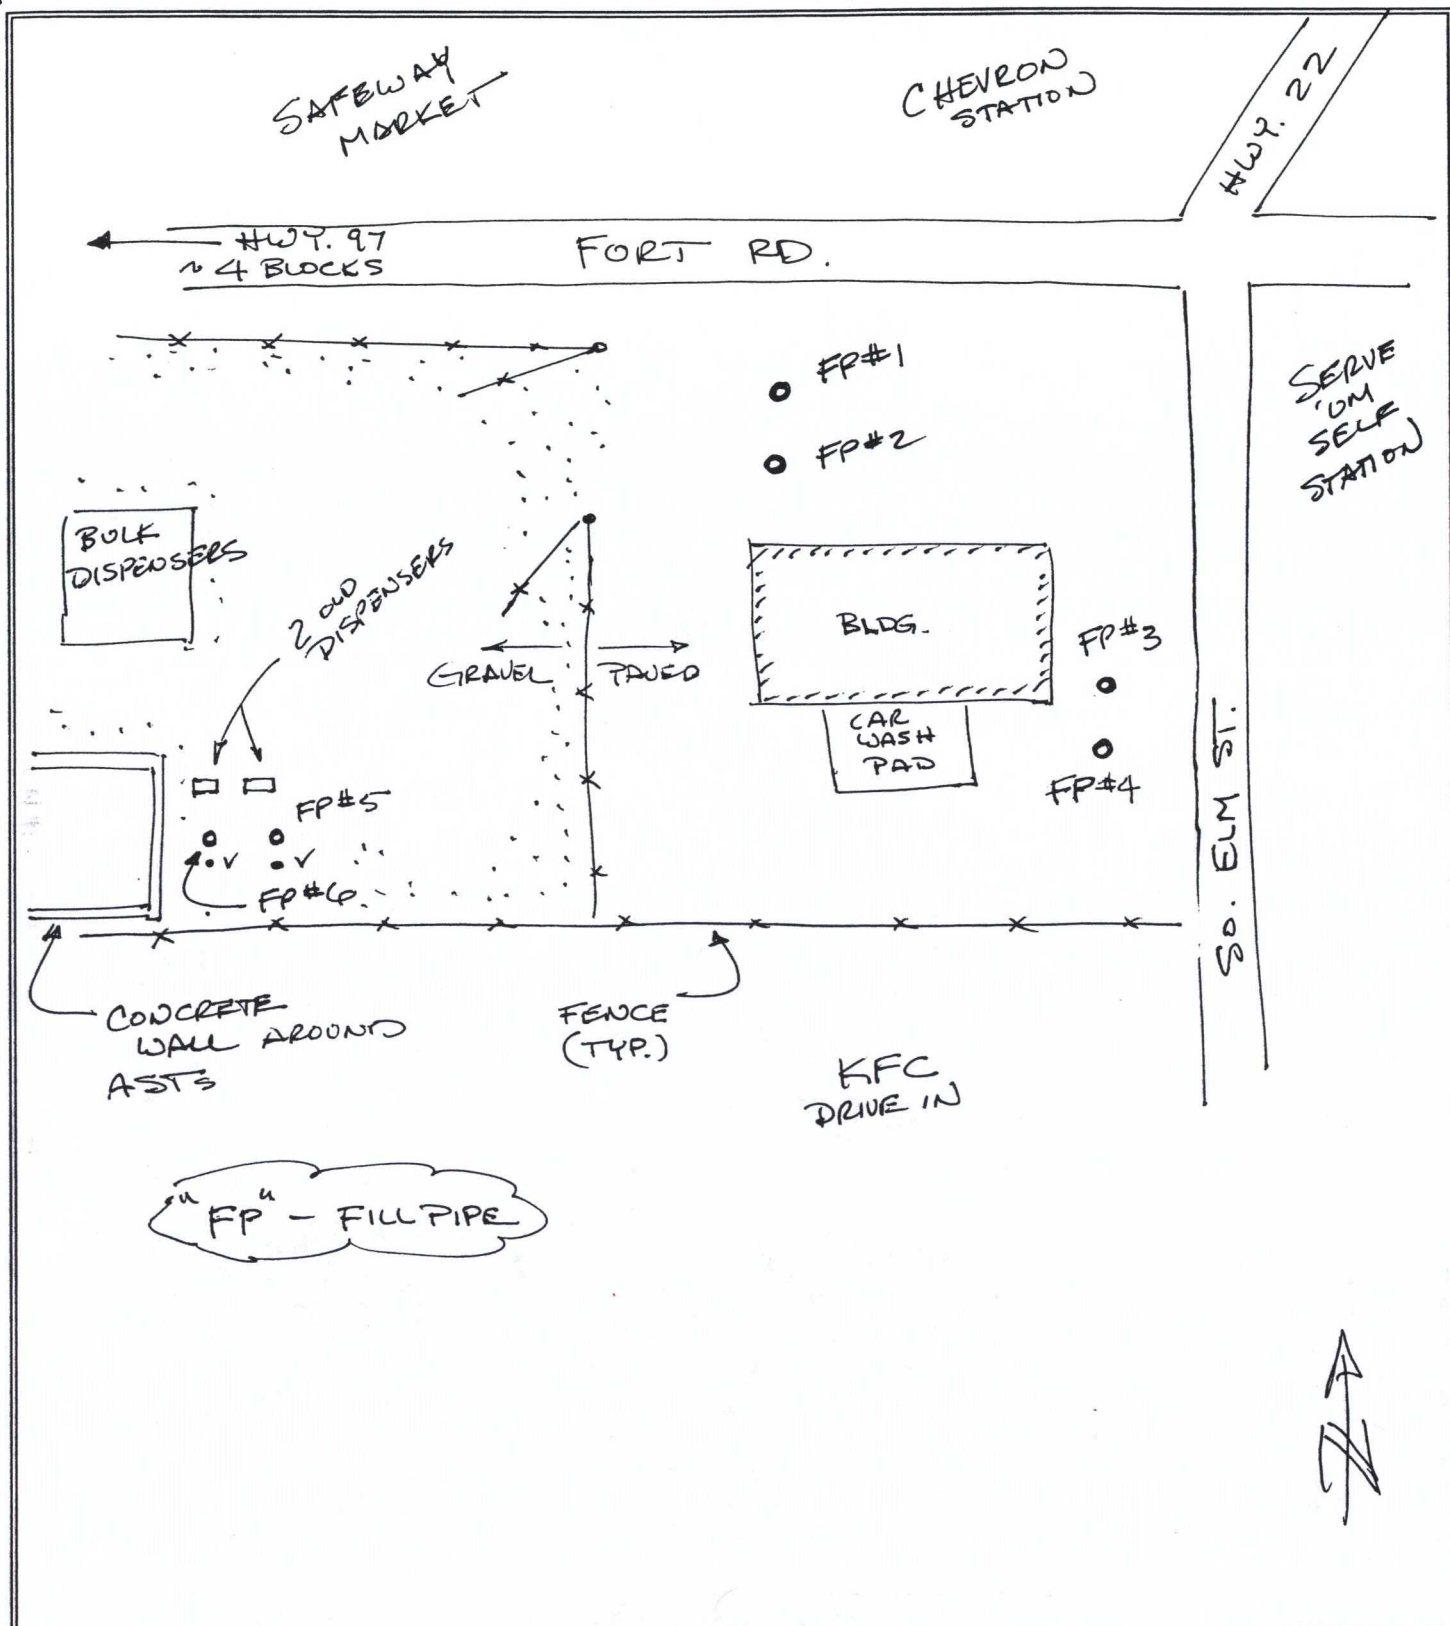 SAFEWAY
MARKET
CHEVRON
STATION
HWY. 22
HWY. 97
~ 4 BLOCKS
FORT RD.
FP#1
FP#2
SERVE
'UM
SELF
STATION
BULK
DISPENSERS
2 OLD
DISPENSERS
GRAVEL
PAVED
BLDG.
FP#3
CAR
WASH
PAD
FP#4
FP#5
V
V
FP#6
SO. ELM ST.
CONCRETE
WALL AROUND
ASTs
FENCE
(TYP.)
KFC
DRIVE IN
"FP" - FILL PIPE
N